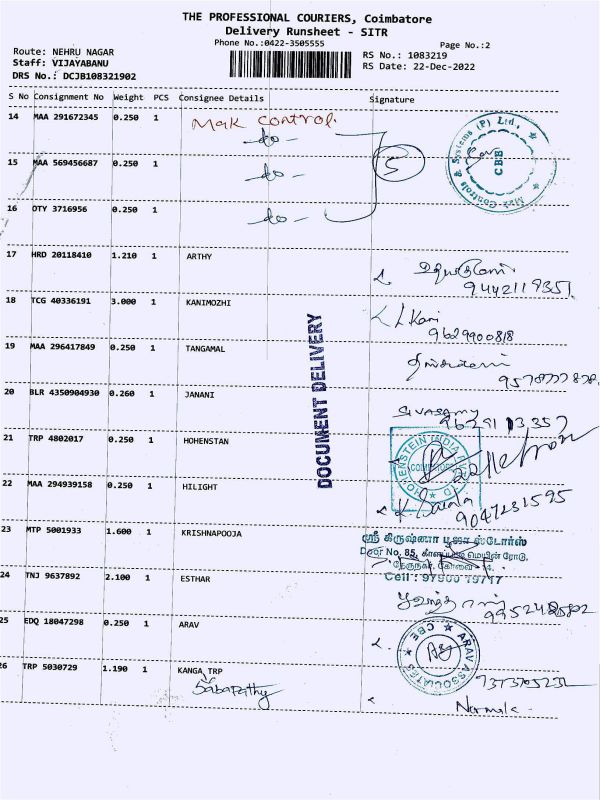 THE PROFESSIONAL COURIERS, Coimbatore
Delivery Runsheet - SITR
Phone No.:0422-3505555
Page No.:2
Route: NEHRU NAGAR
RS No.: 1083219
Staff: VIJAYABANU
RS Date: 22-Dec-2022
DRS No.: DCJB108321902
S No Consignment No Weight PCS Consignee Details Signature
14 MAA 291672345 0.250 1 Mak control.
-do-
15 MAA 569456687 0.250 1
-do-
5
Mak Controls & Systems (P) Ltd.,
CBE
16 OTY 3716956 0.250 1
-do-
17 HRD 20118410 1.210 1 ARTHY
9442119351.
18 TCG 40336191 3.000 1 KANIMOZHI
L Kani
9629900818
19 MAA 296417849 0.250 1 TANGAMAL
20 BLR 4350904930 0.260 1 JANANI
Sivasamy
DOCUMENT DELIVERY
21 TRP 4802017 0.250 1 HOHENSTAN
HOHENSTEIN INDIA
22 MAA 294939158 0.250 1 HILIGHT
9047231595
23 MTP 5001933 1.600 1 KRISHNAPOOJA
ஸ்ரீ கிருஷ்ணா பூஜா ஸ்டோர்ஸ்
Door No, 85,
மெயின் ரோடு,
Cell :
24 TNJ 9637892 2.100 1 ESTHAR
25 EDQ 18047298 0.250 1 ARAV
ARAV ASSOCIATES
CBE
26 TRP 5030729 1.190 1 KANGA TRP
Sabapathy
Normala